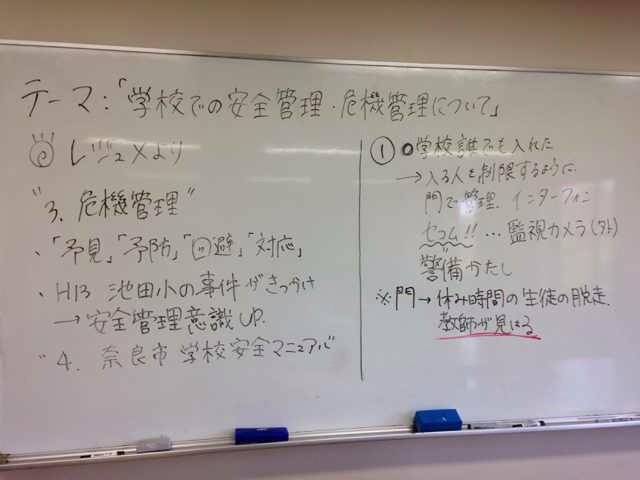 テーマ:「学校での安全管理・危機管理について」
レジュメより
"3. 危機管理"
・「予見」「予防」「回避」「対応」
・H13 池田小の事件がきっかけ
→安全管理意識UP.
"4. 奈良市 学校安全マニュアル"
① 学校誰でも入れた
→入る人を制限するように.
門で管理. インターフォン
セコム!! … 監視カメラ(外)
警備かたし
※門→休み時間の生徒の脱走.
教師が見はる